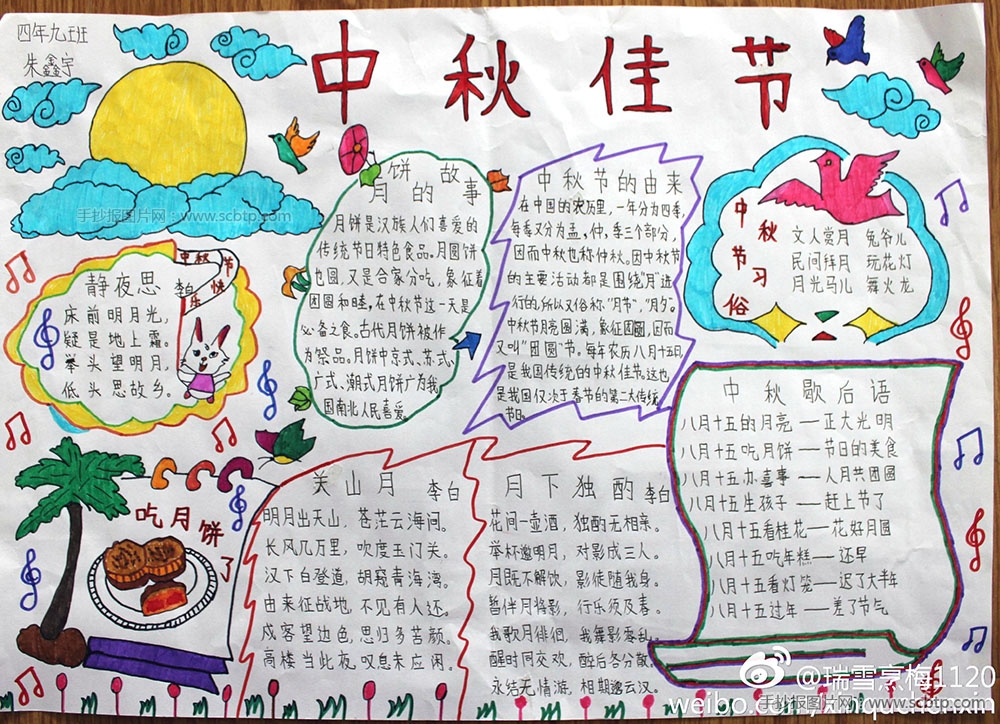 四年九班
朱鑫宇
中秋佳节
手抄报图片网：www.scbtp.com
月饼的故事
月饼是汉族人们喜爱的
传统节日特色食品。月圆饼
也圆，又是合家分吃，象征着
团圆和睦，在中秋节这一天是
必备之食。古代月饼被作
为祭品。月饼中京式、苏式、
广式、潮式月饼广为我
国南北人民喜爱。
中秋节的由来
在中国的农历里，一年分为四季，
每季又分为孟，仲，季三个部分，
因而中秋也称仲秋。因中秋节
的主要活动都是围绕"月"进
行的，所以又俗称"月节"，"月夕"。
中秋节月亮圆满，象征团圆，因而
又叫"团圆"节。每年农历八月十五日，
是我国传统的中秋佳节。这也
是我国仅次于春节的第二大传统
节日。
中秋节习俗
文人赏月 兔爷儿
民间拜月 玩花灯
月光马儿 舞火龙
中秋节
乐快
静夜思 李白
床前明月光，
疑是地上霜。
举头望明月，
低头思故乡。
吃月饼了
关山月 李白
明月出天山，苍茫云海间。
长风几万里，吹度玉门关。
汉下白登道，胡窥青海湾。
由来征战地，不见有人还。
戍客望边色，思归多苦颜。
高楼当此夜，叹息未应闲。
月下独酌 李白
花间一壶酒，独酌无相亲。
举杯邀明月，对影成三人。
月既不解饮，影徒随我身。
暂伴月将影，行乐须及春。
我歌月徘徊，我舞影零乱。
醒时同交欢，醉后各分散。
永结无情游，相期邈云汉。
中秋歇后语
八月十五的月亮—正大光明
八月十五吃月饼—节日的美食
八月十五办喜事—人月共团圆
八月十五生孩子—赶上节了
八月十五看桂花—花好月圆
八月十五吃年糕—还早
八月十五看灯笼—迟了大半年
八月十五过年—差了节气
@瑞雪烹梅1120
手抄报图片网：www.scbtp.com